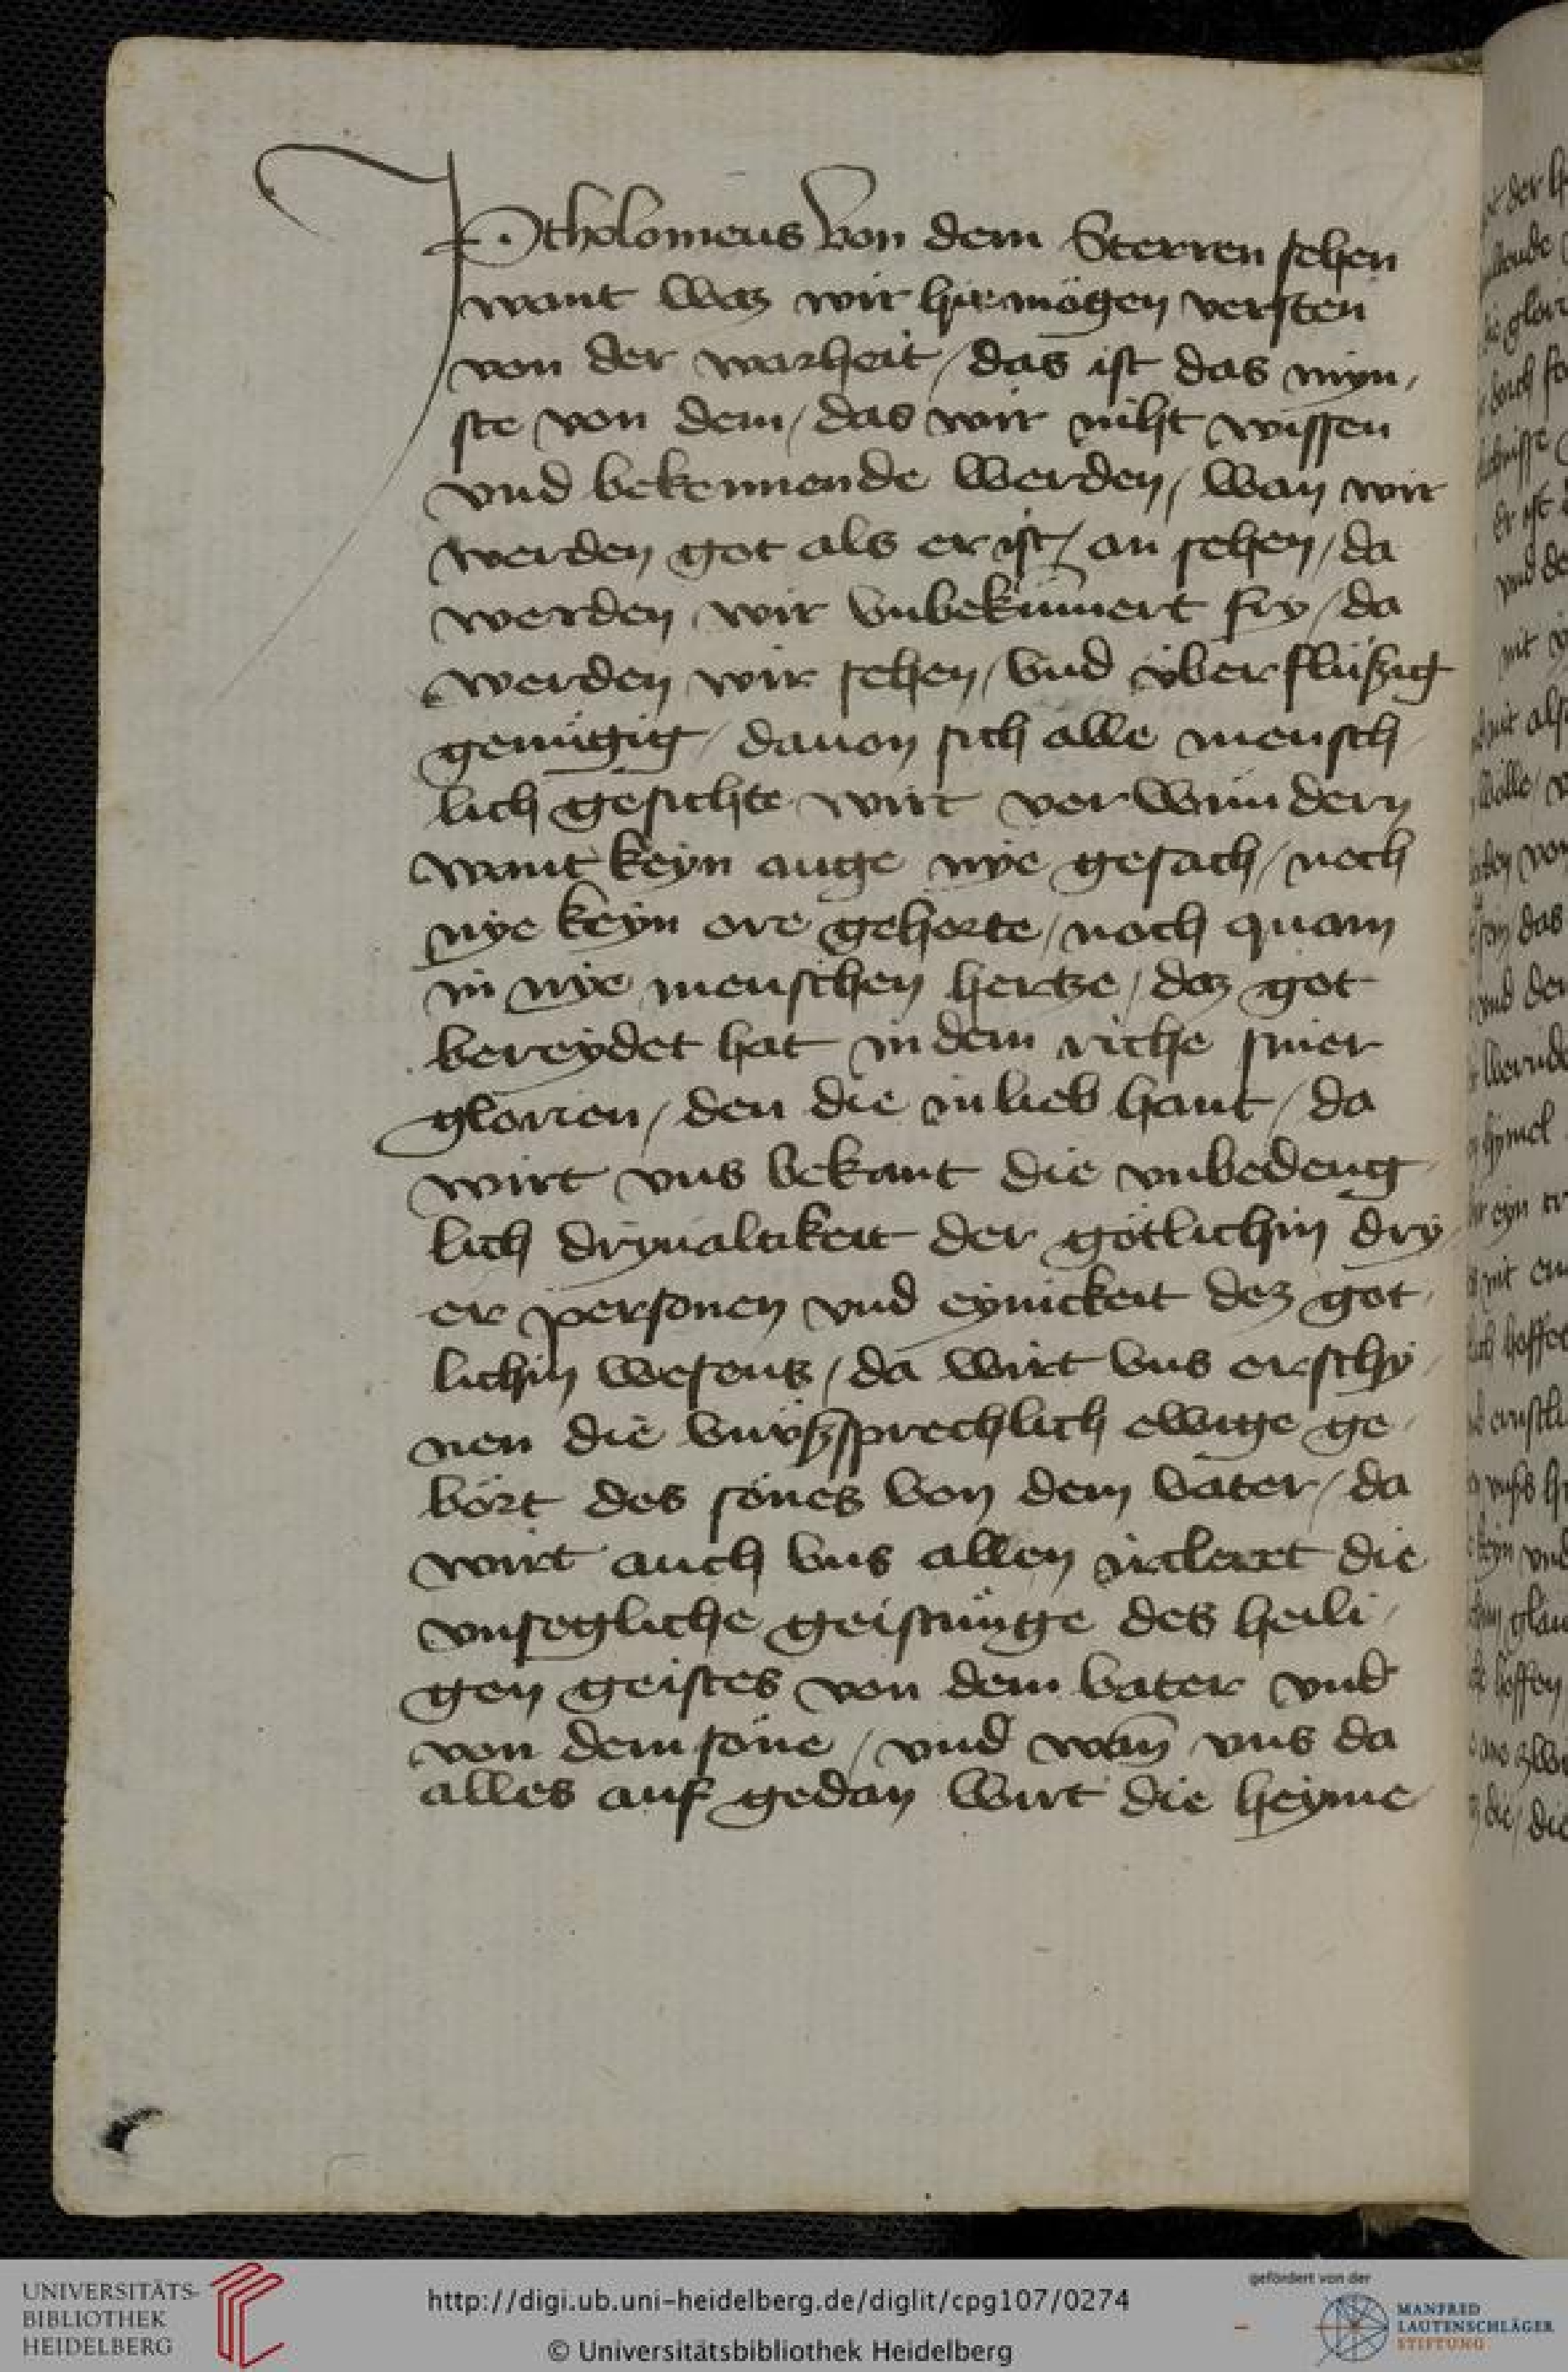 Ptholomeus von dem Sterren sehen
want waz wir hie mögen versten
von der warheit / das ist das myn,
ste von dem / das wir niht wissen
vnd bekennende werden / wan wir
werden got als er ist / an sehen / da
werden wir vnbekümert fry / da
werden wir sehen / vnd überflüßig
genügig / dauon sich alle mensch
lich gesichte wirt verwundern
want keyn auge nye gesach / noch
nye keyn ore gehorte / noch quam
in nye menschen hertze / daz got
bereydet hat in dem riche siner
glorien / den die in lieb hant / da
wirt vns bekant die vnbedeng
lich dryualtikeit der götlichin dry
er personen vnd eynickeit dez got
lichin wesens / da wirt vns erschy
nen die vnvßsprechlich ewige ge
bört des sönes von dem vater / da
wirt auch vns allen ircleret die
vnsegliche geistunge des heili
gen geistes von dem vater vnd
von dem sone / vnd wan̄ vns da
alles auf gedan wirt die heyme
UNIVERSITÄTS-
BIBLIOTHEK
HEIDELBERG
http://digi.ub.uni-heidelberg.de/diglit/cpg107/0274
© Universitätsbibliothek Heidelberg
gefördert von der
MANFRED
LAUTENSCHLÄGER
STIFTUNG